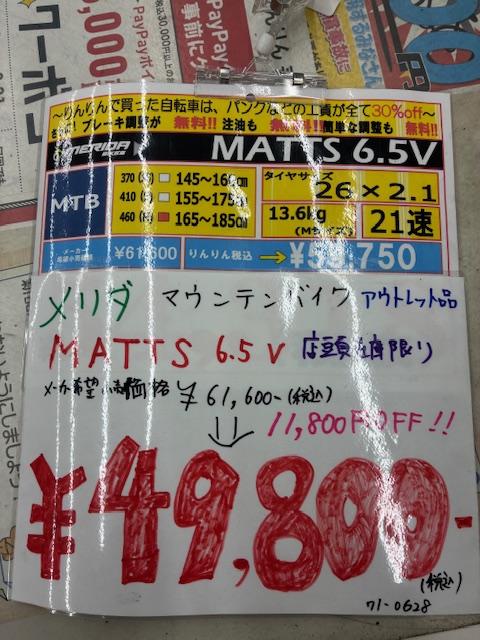 クーポ
,000
PayPayポイ
事前に
PayPay
円
~りんりんで買った自転車は、パンクなどの工賃が全て30%off~
ブレーキ調整が 無料!! 注油も 無料!! 簡単な調整も 無料!!
MERIDA BIKES MATTS 6.5V
MTB
370 145~160cm
410 155~175cm
460 165~185cm
タイヤサイズ
26×2.1
13.6kg
(Mサイズ)
21速
メーカー
¥61,600 りんりん税込 → ,750
メリダ マウンテンバイク アウトレット品
MATTS 6.5V 店頭在庫限り
メーカー希望小売価格 ¥61,600-(税込)
11,800円OFF!!
¥49,800-
(税込)
71-0628